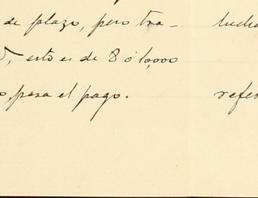 de plazo, pero tra-
esto es de 8 ó 10,000
, para el pago.